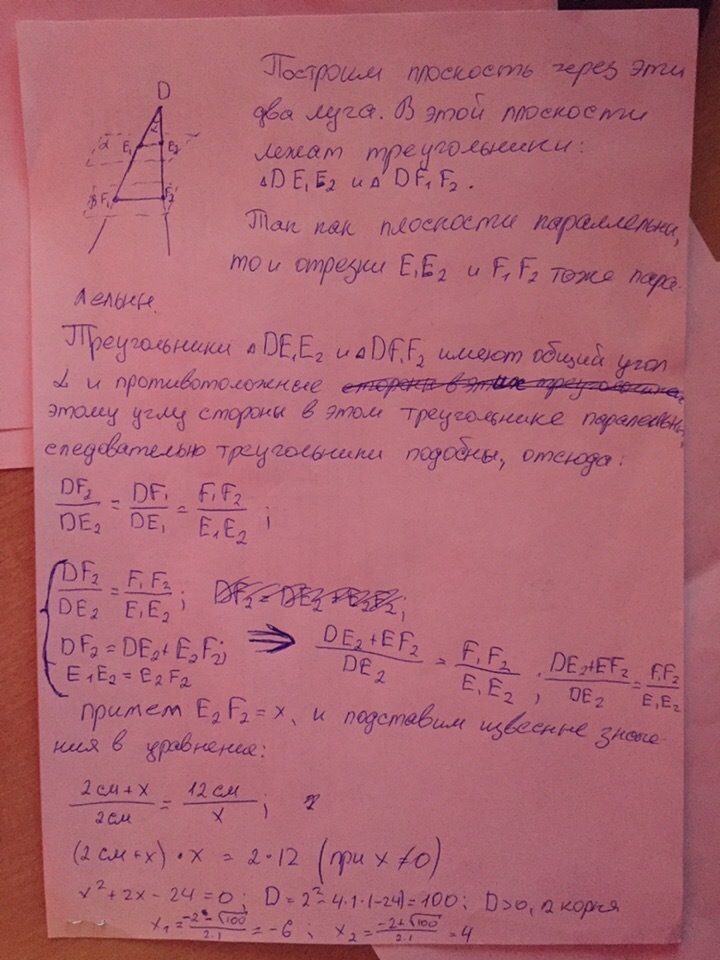 Построим плоскость через эти
два луга. В этой плоскости
лежат треугольники:
△DE₁E₂ и △ DF₁F₂.
Так как плоскости параллельны,
то и отрезки E₁E₂ и F₁F₂ тоже пара-
лельны.
D
α E₁ E₂
β F₁ F₂
Треугольники △DE₁E₂ и △DF₁F₂ имеют общий угол
∠ и противотоложные
этому углу стороны в этом треугольнике паралельны,
следовательно треугольники подобны, отсюда:
DF₂/DE₂ = DF₁/DE₁ = F₁F₂/E₁E₂ ;
DF₂/DE₂ = F₁F₂/E₁E₂ ; DF₂ = DE₂ + E₂F₂;
DF₂ = DE₂ + E₂F₂; ⇒ DE₂+EF₂/DE₂ = F₁F₂/E₁E₂ ; DE₂+EF₂/DE₂ = F₁F₂/E₁E₂
E₁E₂ = E₂F₂
примем E₂F₂ = x, и подставим извесные значе-
ния в уравнение:
2см+x/2см = 12см/x ;
(2см+x) · x = 2·12 (при x ≠ 0)
x² + 2x - 24 = 0; D = 2² - 4·1·(-24) = 100; D>0, 2 корня
x₁ = -2-√100/2·1 = -6 ; x₂ = -2+√100/2·1 = 4